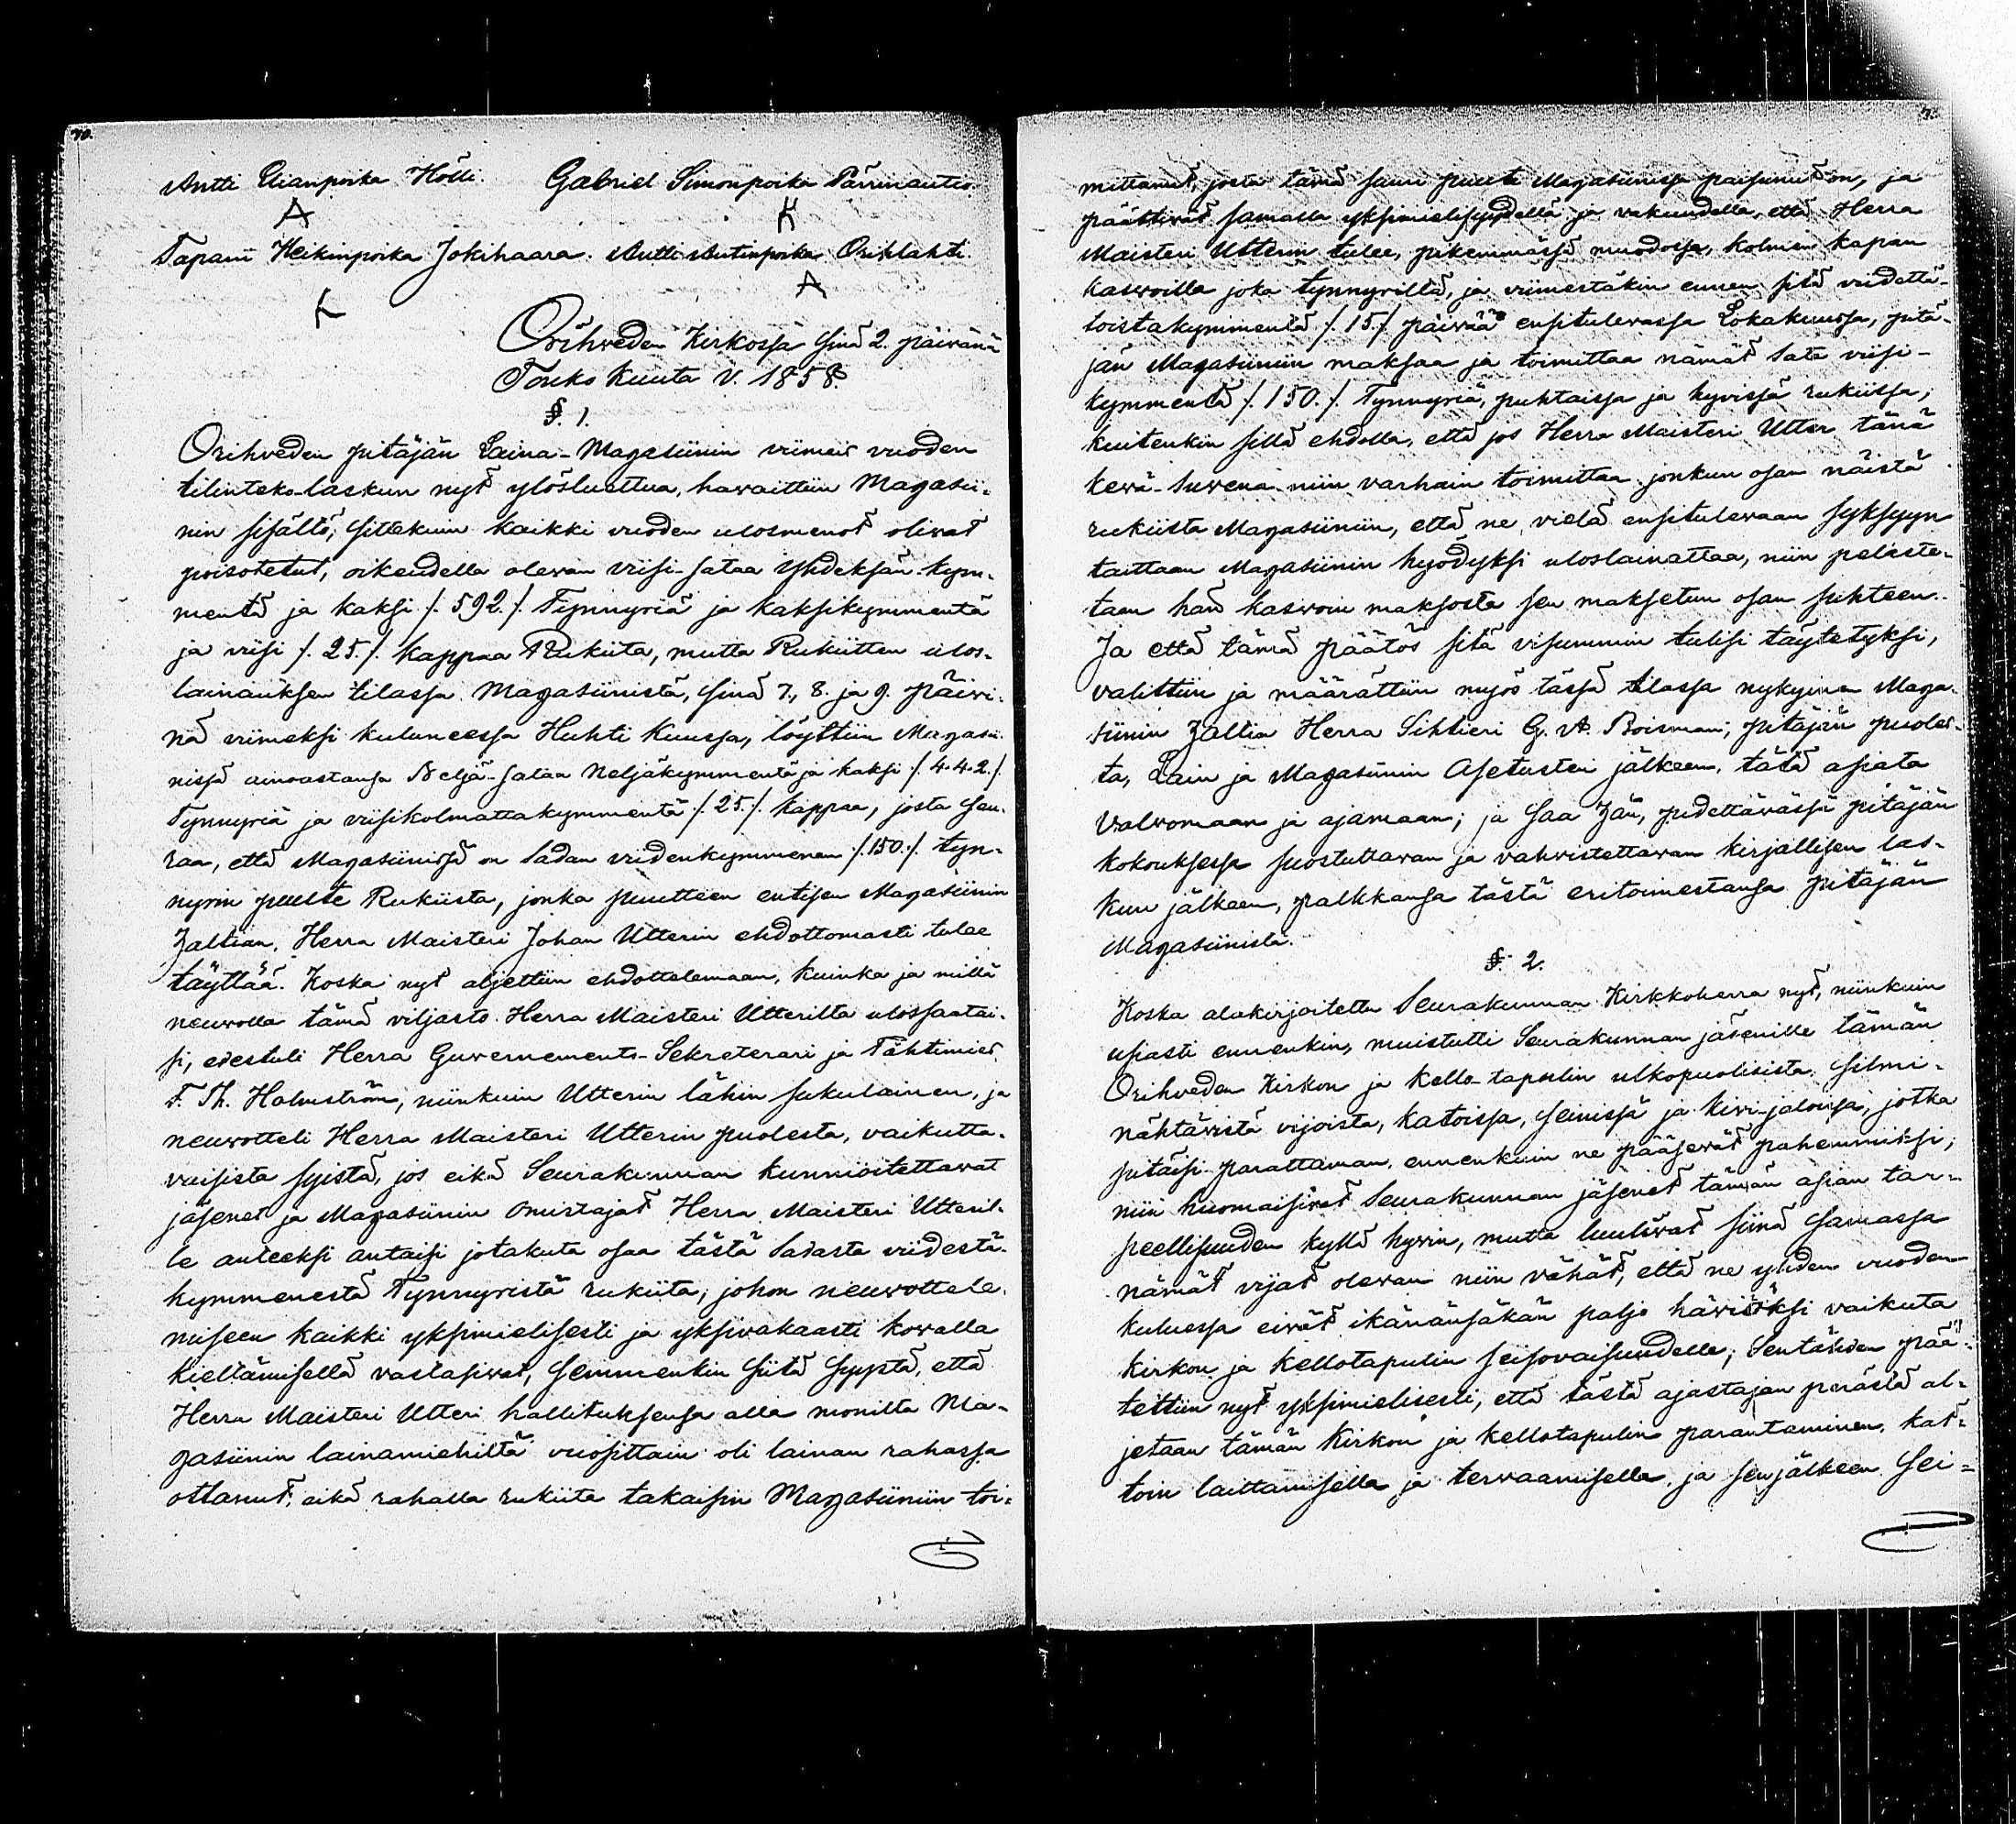 70.
Antti Elianpoika Hölli. Gabriel Simonpoika Pärrinautio
A K
Tapani Heikinpoika Jokihaara. Antti Antinpoika Orihlahti.
K A
Orihveden Kirkossa sinä 2. päivänä
Touko Kuuta V. 1858
§. 1.
Orihveden pitäjän Laina-Magasiinin viimeis vuoden
tilinteko-laskun nyt ylösluettua, hawaittiin Magasii-
nin sisältö, sittekuin kaikki vuoden ulosmenot oliwat
poisotetut, oikeudella olewan viisi-sataa yhdeksän-kym-
mentä ja kaksi /. 592. /. Tynnyriä ja kaksikymmentä
ja viisi /. 25. /. kappaa Rukiita, mutta Rukiitten ulos-
lainauksen tilassa Magasiinista, sinä 7., 8. ja 9. päivi-
nä viimeksi kuluneessa Huhti Kuussa, löyttiin Magasii-
nissa ainoastansa Neljä-sataa Neljäkymmentä ja kaksi /. 442. /.
Tynnyriä ja viisikolmattakymmentä /. 25. /. kappaa, josta seu-
raa, että Magasiinissa on Sadan viidenkymmenen /. 150. /. tyn-
nyrin puute Rukiista, jonka puutteen entisen Magasiinin
Haltian, Herra Maisteri Johan Utterin ehdottomasti tulee
täyttää. Koska nyt aljettiin ehdottelemaan, kuinka ja millä
neuwolla tämä viljasto Herra Maisteri Utterilta ulossaatai-
si, edestuli Herra Guvernements-Sekreterari ja Tähtimies
F. Th. Holmström, niinkuin Utterin lähin sukulainen, ja
neuwotteli Herra Maisteri Utterin puolesta, vaikutta-
vaisista syistä, jos eikä Seurakunnan kunnioitettavat
jäsenet ja Magasiinin omistajat Herra Maisteri Utteril-
le anteeksi antaisi jotakuta osaa tästä Sadasta viidestä-
kymmenestä Tynnyristä rukiita, johon neuwottele-
miseen kaikki yksimielisesti ja yksiwakaasti kowalla
kieltämisellä vastasiwat, semmenkin siitä syystä, että
Herra Maisteri Utteri hallituksensa alla monilta Ma-
gasiinin lainamiehiltä vuosittain oli lainan rahassa
ottanut, eikä rahalla rukiita takaisin Magasiiniin toi-
mittanut, josta tämä suuri puute Magasiinissa paisunut on, ja
päättiwät samalla yksimielisyydellä ja vakuudella, että Herra
Maisteri Utterin tulee, pikemmässä muodossa, kolmen kapan
kaswoilla joka tynnyriltä, ja viimeistäkin ennen sitä viidettä-
toistakymmentä /. 15. /. päivää ensitulewassa Lokakuussa, pitä-
jän Magasiiniin maksaa ja toimittaa nämät Sata viisi-
kymmentä /. 150. /. Tynnyriä, puhtaissa ja hyvissä rukiissa;
kuitenkin sillä ehdolla, että jos Herra Maisteri Utter tänä
kewä-Suwena niin varhain toimittaa jonkun osan näistä
rukiista Magasiiniin, että ne vielä ensitulewaan syksyyn
taittaan Magasiinin hyödyksi uloslainattaa, niin peläste-
taan hän kaswoin maksosta sen maksetun osan suhteen.
Ja että tämä päätös sitä visummin tulisi täytetyksi,
valittiin ja määrättiin myös tässä tilassa nykyinen Maga-
siinin Haltia Herra Sihtieri G. A. Boisman, pitäjän puoles-
ta, Lain ja Magasiinin Asetusten jälkeen, tätä asiata
Valwomaan ja ajamaan; ja saa Hän, pidettävässä pitäjän
kokouksessa suostuttawan ja vahwistettawan kirjallisen las-
kun jälkeen, palkkansa tästä eritoimestansa pitäjän
Magasiinista.
§. 2.
Koska alakirjoitettu Seurakunnan Kirkkoherra nyt, niinkuin
usiasti ennenkin, muistutti Seurakunnan jäsenille tämän
Orihveden Kirkon ja Kello-tapulin ulkopuolisista silmi-
nähtävistä vijoista, katoissa, seinissä ja kivi-jaloissa, jotka
pitäisi parattaman, ennenkuin ne pääsewät pahemmiksi;
niin huomaisiwat Seurakunnan jäsenet tämän asian tar-
peellisuuden kyllä hywin, mutta luuliwat siinä samassa
nämät vijat olewan niin vähät, että ne yhden vuoden
kuluessa eiwät ikänänsäkän paljo häviöksi vaikuta
kirkon ja kellotapulin seisovaisuudelle; Sentähden pää-
tettiin nyt yksimielisesti, että tästä ajastajan perästä al-
jetaan tämän Kirkon ja kellotapulin parantaminen, kat-
toin laittamisella ja terwaamisella, ja senjälkeen Sei-